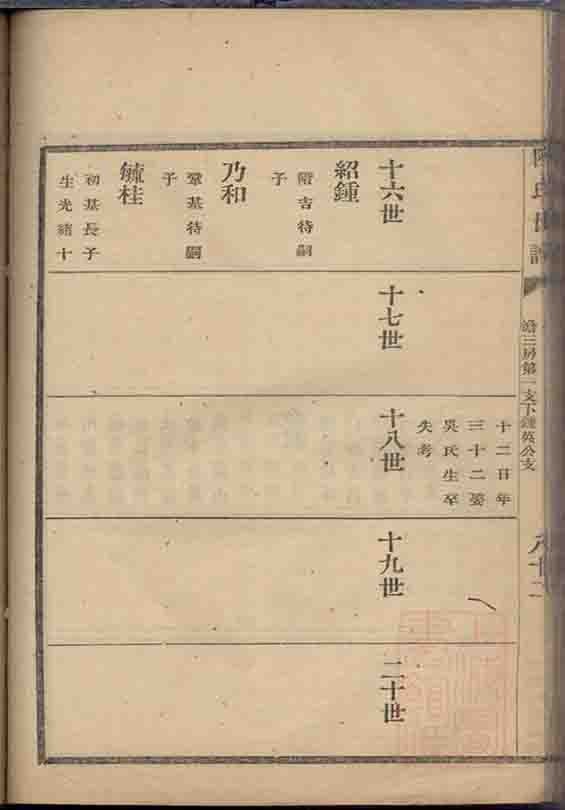 氏世譜
三房第一支下鍾英公支
八十二
十二日年
三十二娶
吳氏生卒
失考
十六世
十七世
十八世
十九世
二十世
紹鍾
階吉待嗣
子
乃和
鞏基待嗣
子
毓桂
初基長子
生光緒十